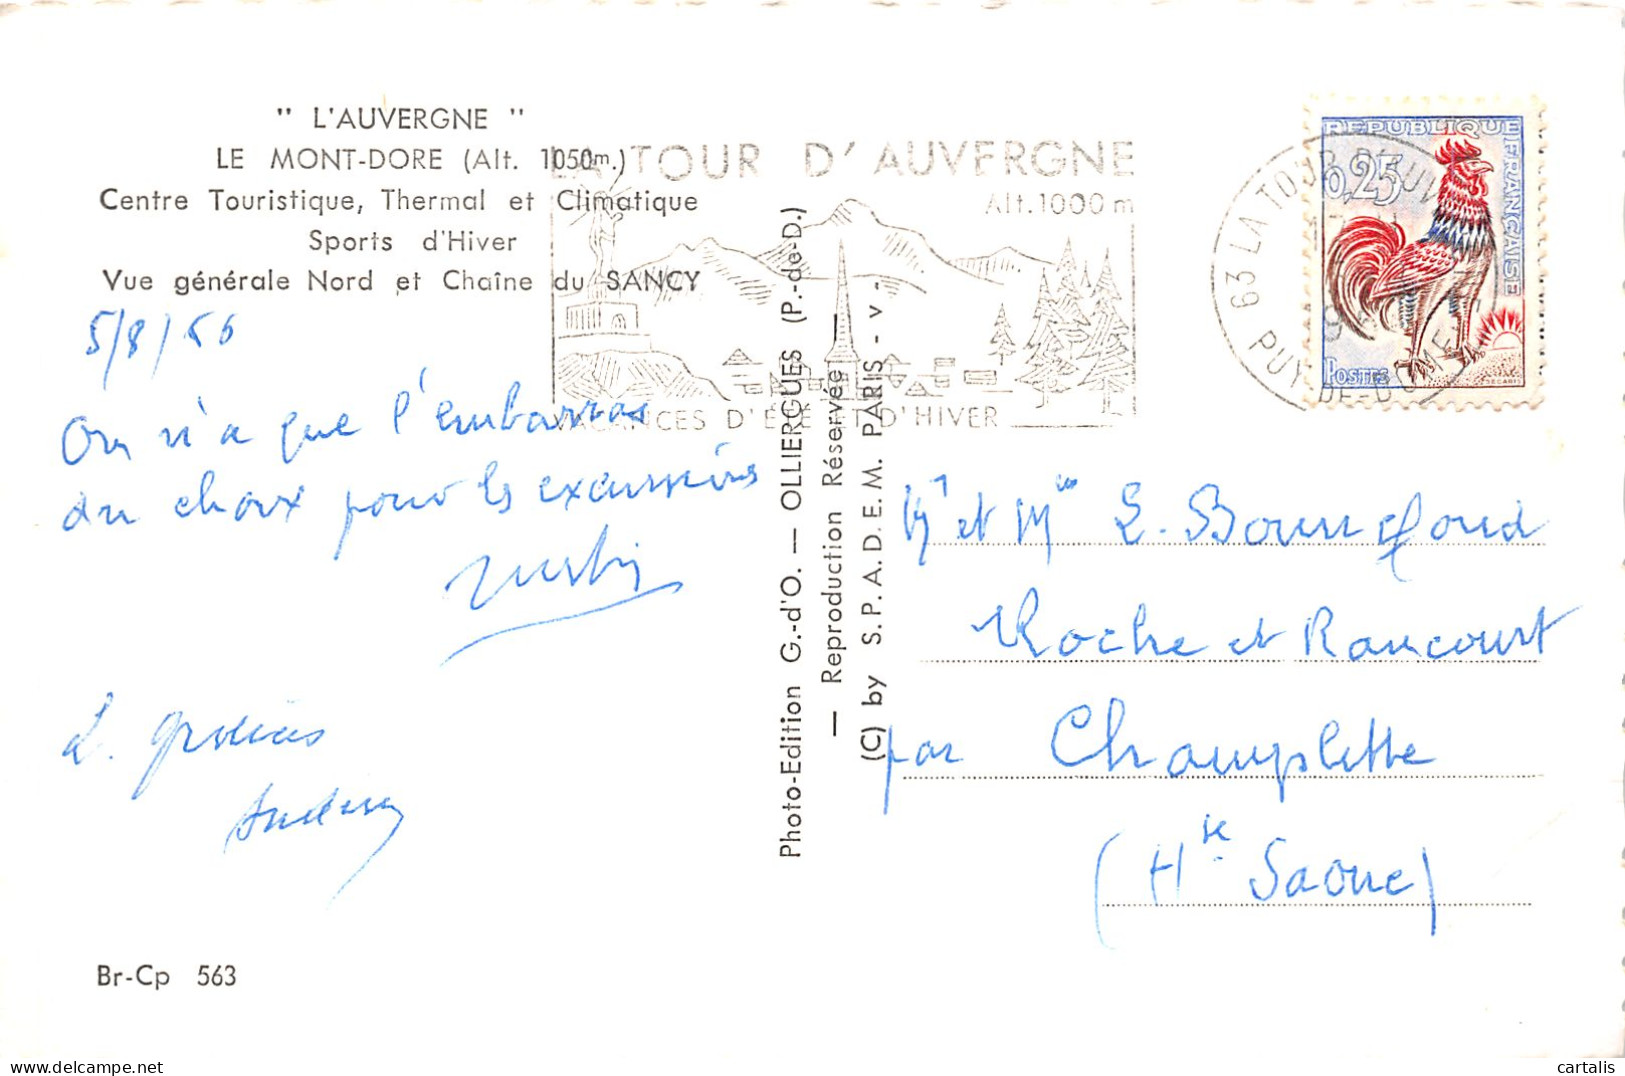 " L'AUVERGNE "
LE MONT-DORE (Alt. 1050m.)
Centre Touristique, Thermal et Climatique
Sports d'Hiver
Vue générale Nord et Chaîne du SANCY
5/8/66
On n'a que l'embarras
du choix pour les excursions
Br-Cp 563
Photo-Edition G.-d'O. — OLLIERGUES (P.-de-D.)
— Reproduction Réservée —
(C) by S.P.A.D.E.M. PARIS - v -
LA TOUR D'AUVERGNE
Alt. 1000 m
VACANCES D'ÉTÉ ET D'HIVER
63 LA TOUR D'AUVERGNE
PUY-DE-DOME
REPUBLIQUE FRANCAISE
0,25
POSTES
DECARIS
Mr et Mme E. Bonnefond
Roche et Raucourt
par Champlitte
(Hte Saone)
cartalis
Delcampe.net